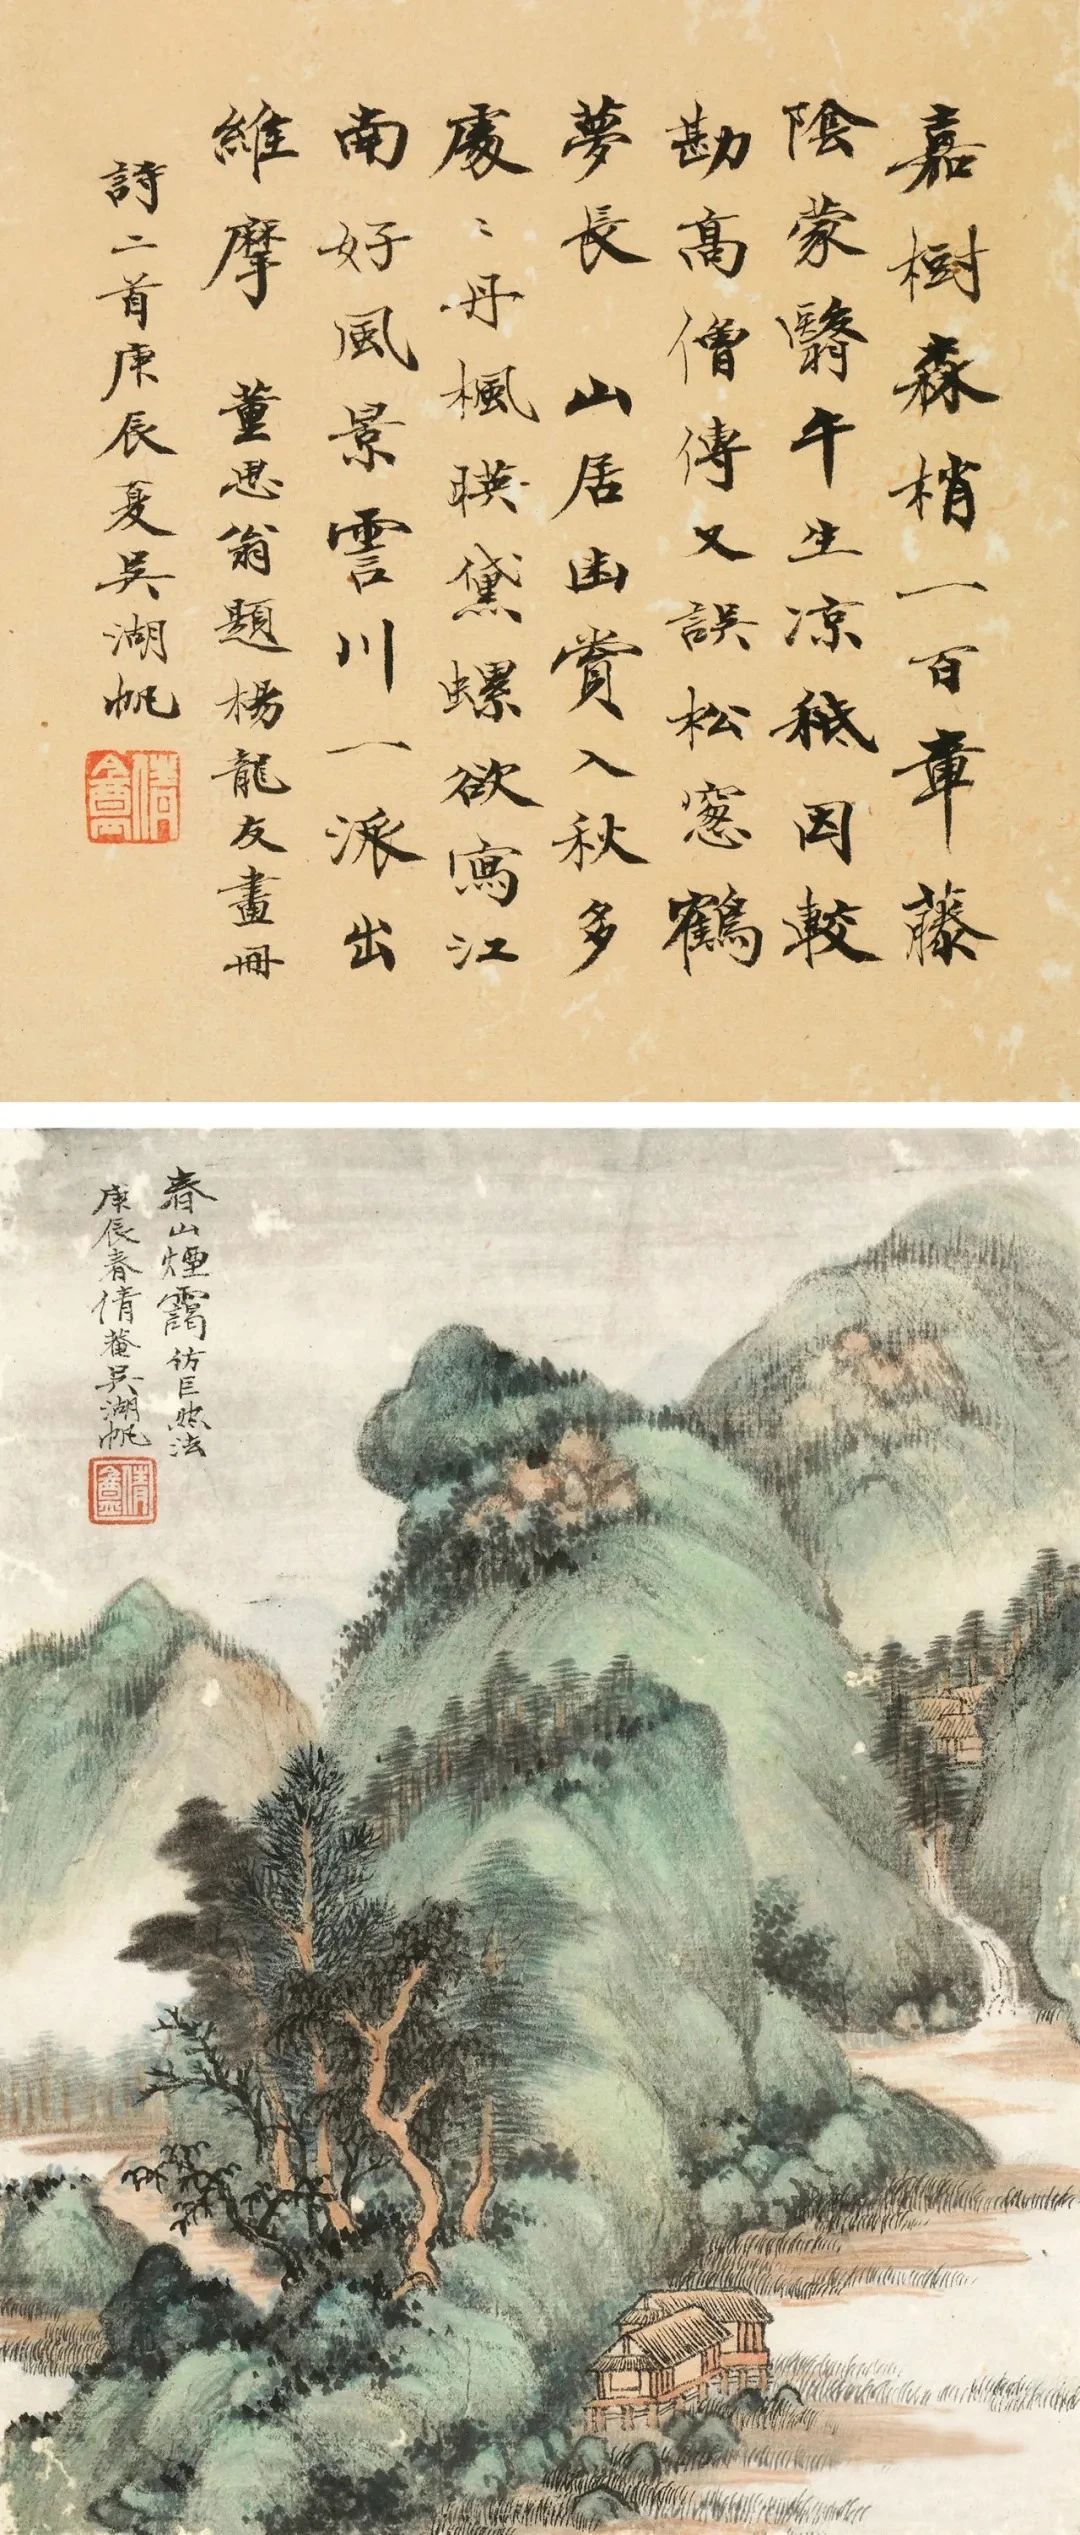 嘉樹森梢一百章藤
陰蒙翳午生涼秪因較
勘高僧傳又誤松窻鶴
夢長　山居幽賞入秋多
處〻丹楓暎黛螺欲寫江
南好風景雲川一派出
維摩　董思翁題楊龍友畫冊
詩二首庚辰夏吳湖帆
倩盦
春山煙靄仿巨然法
庚辰春倩菴吳湖帆
倩盦